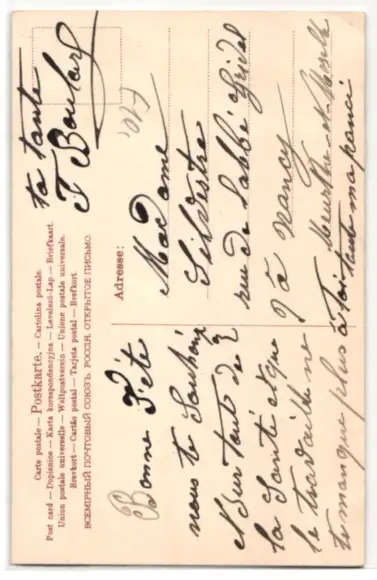 Carte postale. — Postkarte. — Cartolina postale.
Post card — Dopisnice — Karta korespondencyjna — Levelező-Lap — Briefkaart.
Union postale universelle. — Weltpostverein — Unione postale universale.
Brevkort — Cartão postal — Tarjeta postal — Brefkort.
ВСЕМІРНЫЙ ПОЧТОВЫЙ СОЮЗЪ. РОССІЯ. ОТКРЫТОЕ ПИСЬМО.
ta tante
F Boulard
Adresse:
Madame
Silvestre
rue de l'abbé
7 à Nancy
Meurthe-et-Moselle
Bonne Fête
nous te
et surtout de
la Santé et que
le travaille ne
te manque plus à toi tante ma